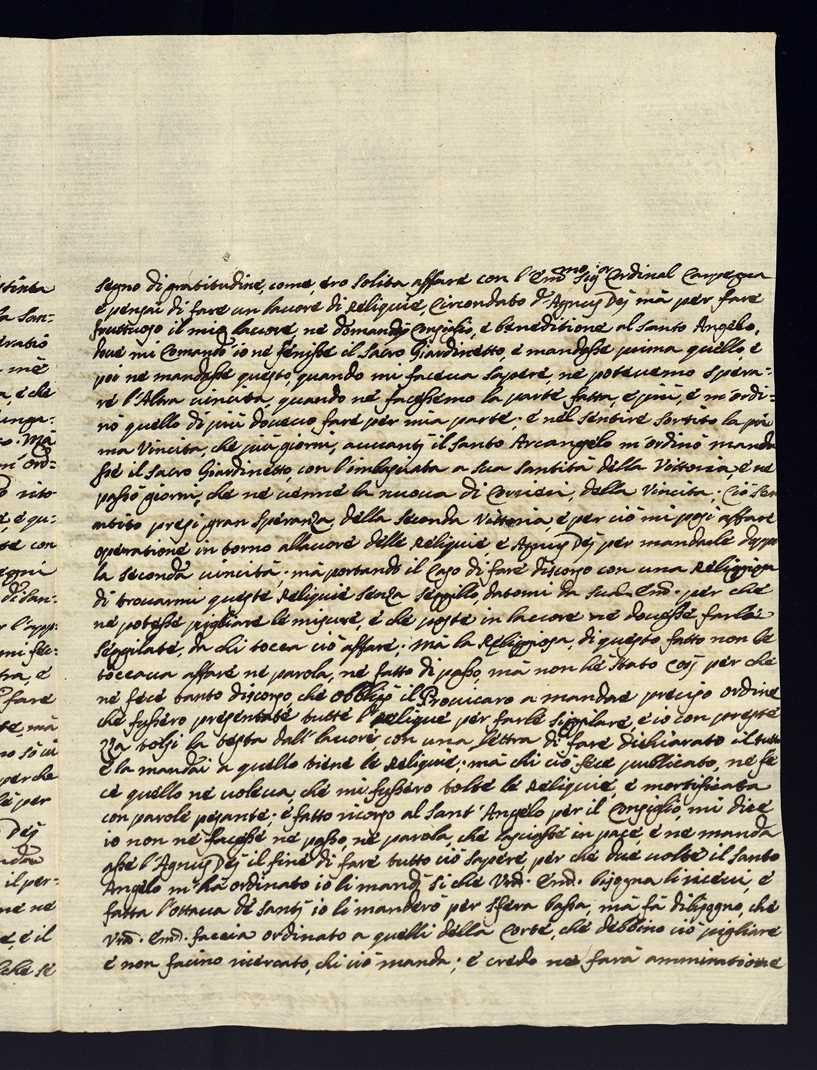 segno di gratitudine, come, ero solita affare con l'Em.mo Sig.r Cardinal Carpegna
e pensai di fare un lavore di Reliquie, Circondato d'Agnus Dej mà per fare
fruttuoso il mio lavore, ne domandaj Consiglio, e beneditione al Santo Angelo,
dove mi Comandò io ne fenisse il Sacro Giardinetto, e mandasse prima quello, e
poi ne mandasse questo, quando mi faceva sapere, ne potevemo spera-
re l'Altra vincita, quando ne facessemo la parte fatta, e più, e m'ordi-
nò quello di più dovevo fare per mia parte; e nel sentire sortito la pri
ma Vincita, che più giorni, avvantj il Santo Arcangelo m'ordinò manda
sse il Sacro Giardinetto, con l'imbasciata a sua Santità della Vittoria, e ne
passò giorni, che ne venne la nuova di Corrieri, della Vincita; Ciò sen
ntito presi gran speranza, della seconda Vittoria e per ciò mi posi affare
operatione in torno allavore delle Reliquie e Agnus Dej per mandarle doppo
la seconda vincita; mà portando il Caso di fare discorso con una Religiosa
di trovarmi queste Reliquie senza seggillo, datomi da sua Em. per che
ne potesse pigliare le misure, e che poste in lavore ne dovesse farle
seggilate, da chi tocca ciò affare; mà la Religiosa, di questo fatto non le
toccava affare ne parola, ne fatto di passo, mà non hè stato Cosj per che
ne fece tanto discorso, che obbligò il Provicaro a mandare preciso ordine
che fussero presentate tutte l'Relique per farle sigglare, e io con preste
zza tolsi la testa dall'lavore, con una lettra di fare dichiarato il tutto
e la mandai a quello tiene le Reliquie; mà chi ciò fece publicato, ne fe
ce quello ne voleva, che mi fussero tolte le Reliquie, e mortificata
con parole pesante; e fatto ricorso al Sant'Angelo per il Consiglio, mi dice
io non ne facesse ne passo, ne parola, che lasciasse in pace, e ne manda
asse l'Agnus Dej il fine di fare tutto ciò sapere, per che due volte il Santo
Angelo m'hà ordinato io li mandj si che Vra. Em. bisogna li ricevi, e
fatta l'ottava de Santj io li manderò per sfera bassa, mà fà dibisogno, che
Vra. Em. faccia ordinato a quelli della Corte, che debbino ciò pigliare
e non facino ricercato, chi ciò manda; e credo ne farà ammiratione